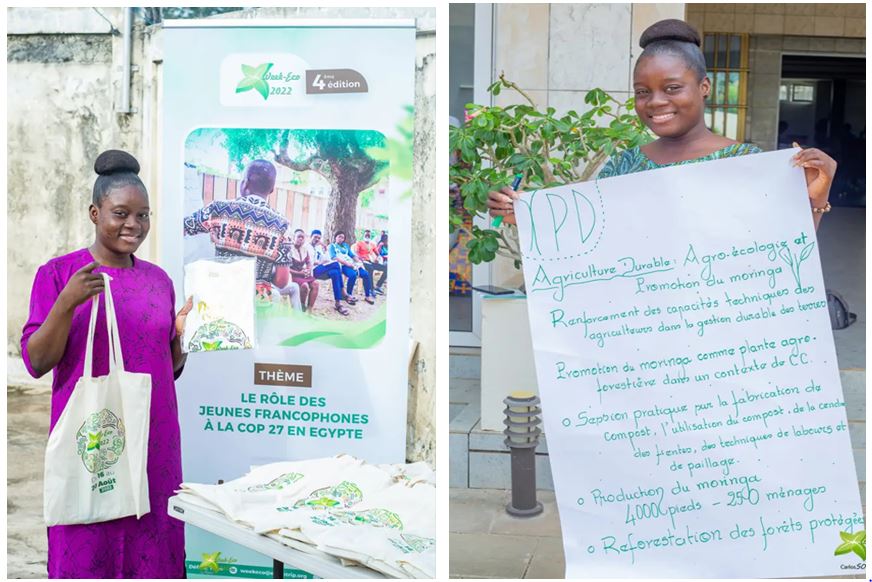 Week-Eco
2022
4ème édition
THÈME
LE RÔLE DES
JEUNES FRANCOPHONES
À LA COP 27 EN EGYPTE
Week-Eco
2022
16 au
Août
2022
Week-Eco
IPD
Agriculture Durable : Agro-écologie et
Promotion du moringa
Renforcement des capacités techniques des
agriculteurs dans la gestion durable des terres
Promotion du moringa comme plante agro-
forestière dans un contexte de CC.
o Session pratique sur la fabrication de
compost, l'utilisation du compost, de la cendre
des fientes, des techniques de labours et
de paillage.
o Production du moringa
4000 pieds - 250 ménages
o Reforestation des forêts protégées
Carlos SO